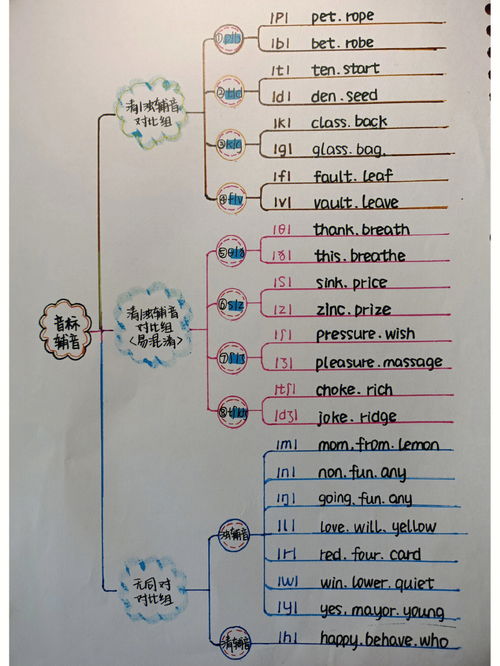 音标
辅音
清/浊辅音
对比组
①p/b
/p/ pet. rope
/b/ bet. robe
②t/d
/t/ ten. start
/d/ den. seed
③k/g
/k/ class. back
/g/ glass. bag.
④f/v
/f/ fault. leaf
/v/ vault. leave
清/浊辅音
对比组
<易混淆>
⑤θ/ð
/θ/ thank. breath
/ð/ this. breathe
⑥s/z
/s/ sink. price
/z/ zinc. prize
⑦ʃ/ʒ
/ʃ/ pressure. wish
/ʒ/ pleasure. massage
⑧
/tʃ/ choke. rich
/dʒ/ joke. ridge
无同对
对比组
浊辅音
/m/ mom. from. lemon
/n/ non. fun. any
/ŋ/ going. fun. any
/l/ love. will. yellow
/r/ red. four. card
/w/ win. lower. quiet
/y/ yes. mayor. young
清辅音
/h/ happy. behave. who